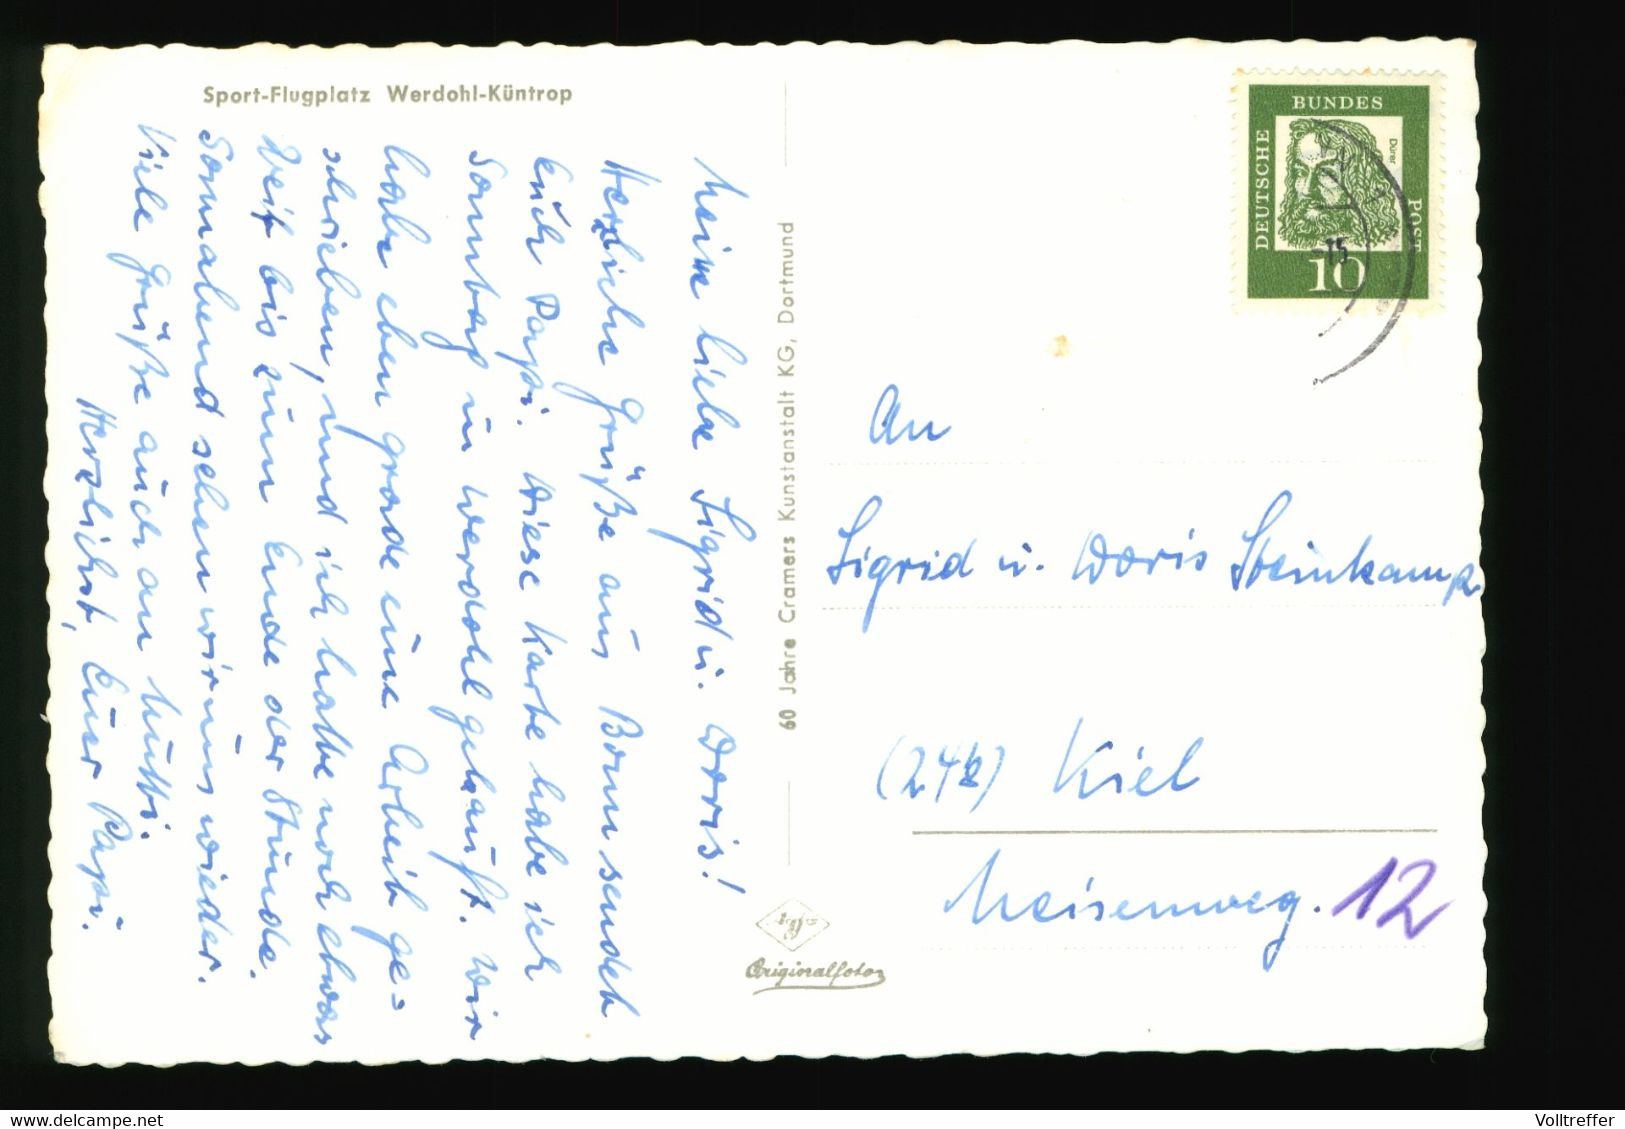 Sport-Flugplatz Werdohl-Küntrop
Meine liebe Sigrid u. Doris!
Herzliche Grüße aus Bonn sendet
Euch Papi. Diese Karte habe ich
Sonntag in Werdohl gekauft. Wir
habe eben grade eine Arbeit ge=
schrieben, und ich hatte noch etwas
Zeit bis zum Ende der Stunde.
Sonnabend sehen wir uns wieder.
Viele Grüße auch an Mutti.
Herzlichst, Euer Papi.
60 Jahre Cramers Kunstanstalt KG, Dortmund
Agfa
Originalfoto
DEUTSCHE
BUNDES
POST
Dürer
10
-15
An
Sigrid u. Doris Steinkamp
(24b) Kiel
Meisenweg. 12
www.delcampe.net
Volltreffer